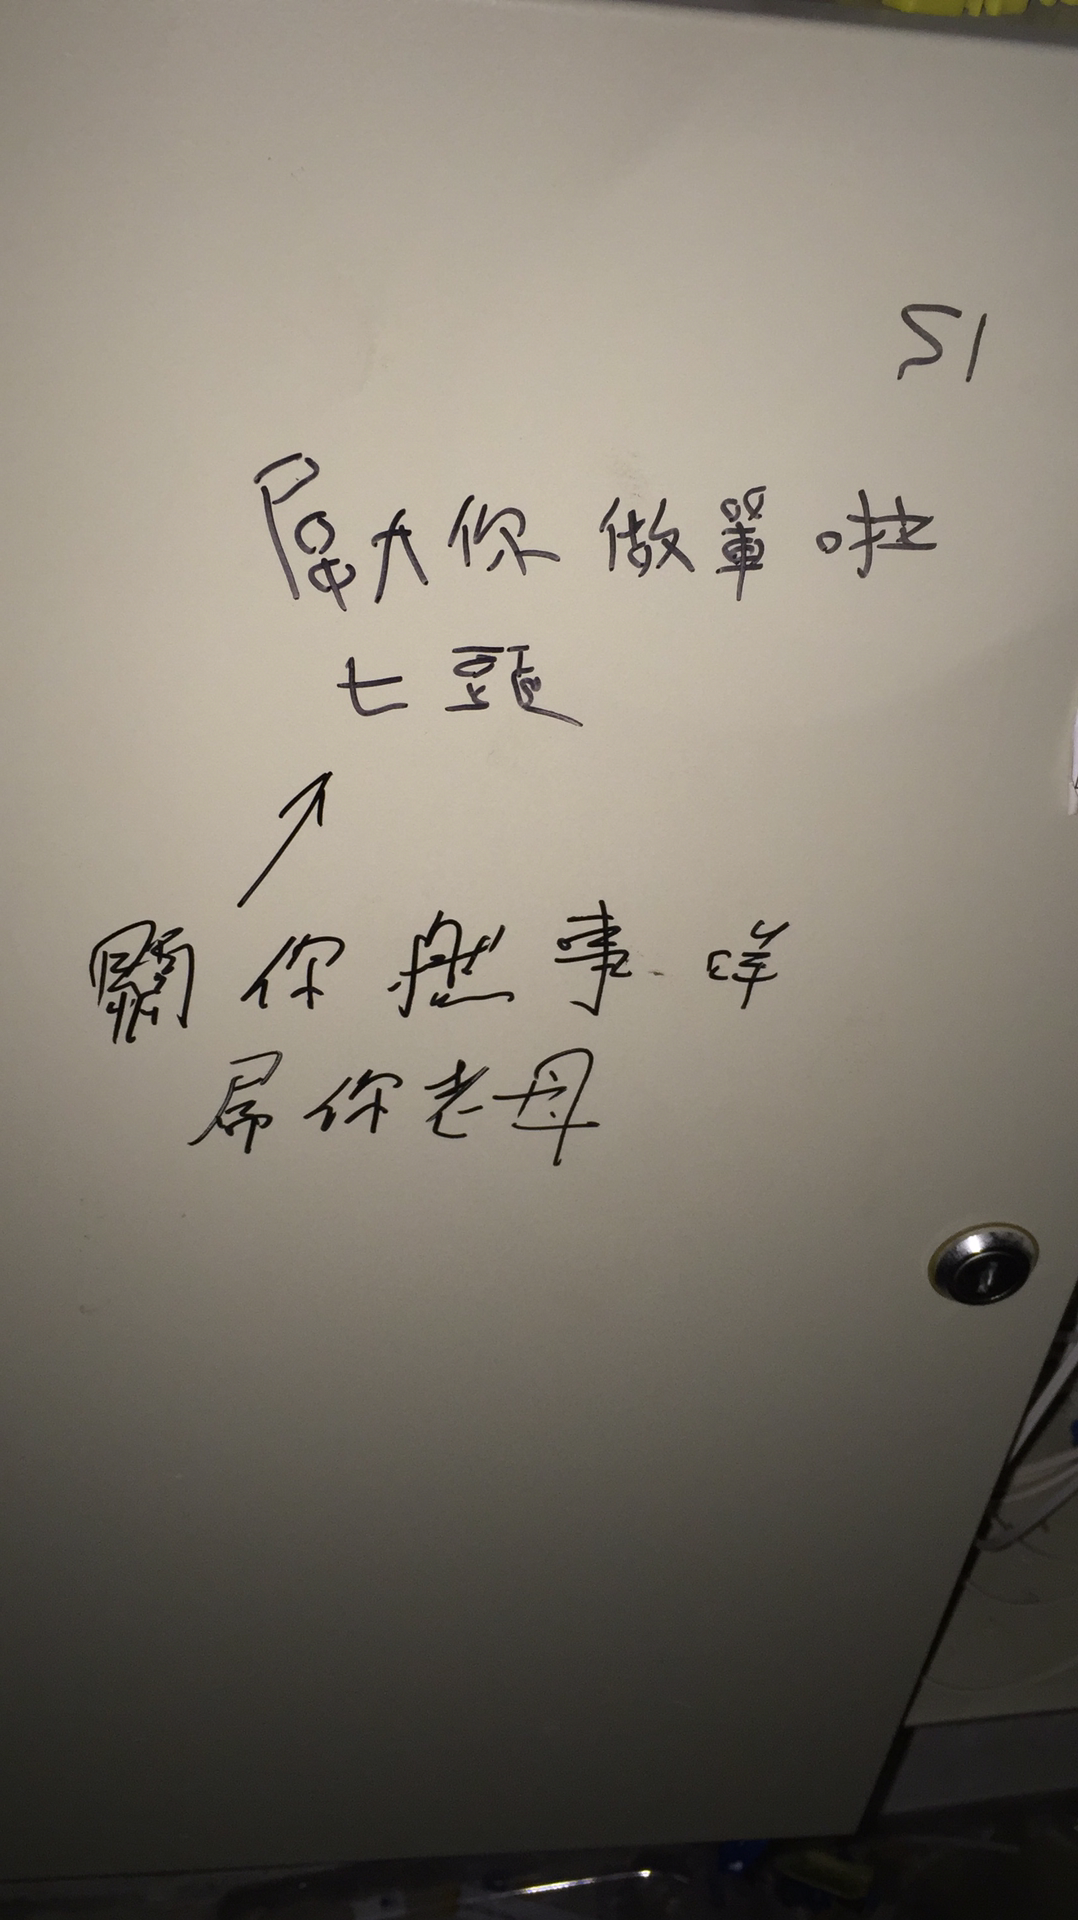 S1
屌大你做單啦
七頭
關你撚事咩
屌你老母